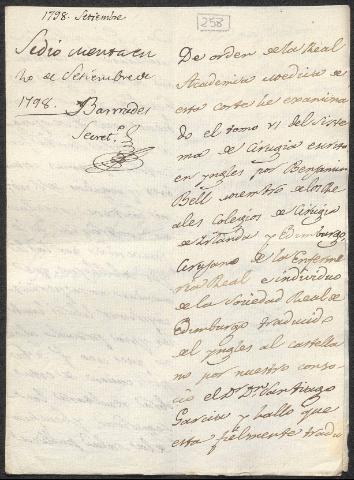 1798. Setiembre
258
Se dio cuenta en
de Setiembre de
1798. Barnades
Secret.º
De orden de la Real
Academia medica de
esta corte he examina
do el tomo VI del Siste
ma de Cirugia escrito
en yngles por Benjamin
Bell miembro de los Re
ales Colegios de Cirugia
de Irlanda y Edimburgo,
Cirujano de la Enferme
ria Real e individuo
de la Sociedad Real de
Edimburgo traducido
del yngles al castella
no por nuestro conso
cio el Dr. Dn. Santiago
Garcia y hallo que
esta fielmente tradu